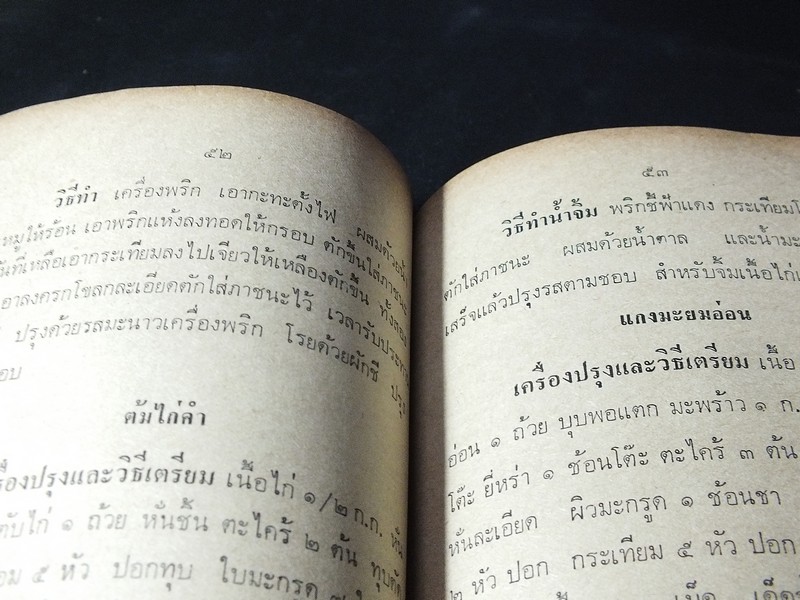 ๕๒
วิธีทำ เครื่องพริก เอากะทะตั้งไฟ ผสมด้วย
หมูให้ร้อน เอาพริกแห้งลงทอดให้กรอบ ตักขึ้นใส่ภาชนะ
ที่เหลือเอากระเทียมลงไปเจียวให้เหลืองตักขึ้น ทั้งสอง
เอาลงครกโขลกละเอียดตักใส่ภาชนะไว้ เวลารับประทาน
ปรุงด้วยรสมะนาวเครื่องพริก โรยด้วยผักชี ปรุง
อบ
ต้มไก่ดำ
เครื่องปรุงและวิธีเตรียม เนื้อไก่ ๑/๒ ก.ก. หั่น
ตับไก่ ๑ ถ้วย หั่นชิ้น ตะไคร้ ๒ ต้น ทุบตัด
๕ หัว ปอกทุบ ใบมะกรูด
๕๓
วิธีทำน้ำจิ้ม พริกชี้ฟ้าแดง กระเทียม
ตักใส่ภาชนะ ผสมด้วยน้ำตาล และน้ำ
เสร็จแล้วปรุงรสตามชอบ สำหรับจิ้มเนื้อไก่
แกงมะยมอ่อน
เครื่องปรุงและวิธีเตรียม เนื้อ
อ่อน ๑ ถ้วย บุบพอแตก มะพร้าว ๑ ก.
โต๊ะ ยี่หร่า ๑ ช้อนโต๊ะ ตะไคร้ ๓ ต้น
หั่นละเอียด ผิวมะกรูด ๑ ช้อนชา
๒ หัว ปอก กระเทียม ๕ หัว ปอก
เม็ด เด็ด